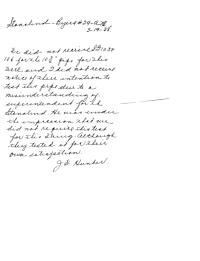 Stanolind - Byers #39
3-19-38.
We did not receive
for the 10 3/4" pipe for this
well and I did not receive
notice of their intention to
test this pipe due to a
misunderstanding of
superintendent for the
Stanolind. He was under
the impression that we
did not require this test
for this string. Although
they tested it for their
own satisfaction.
J. E. Hunter